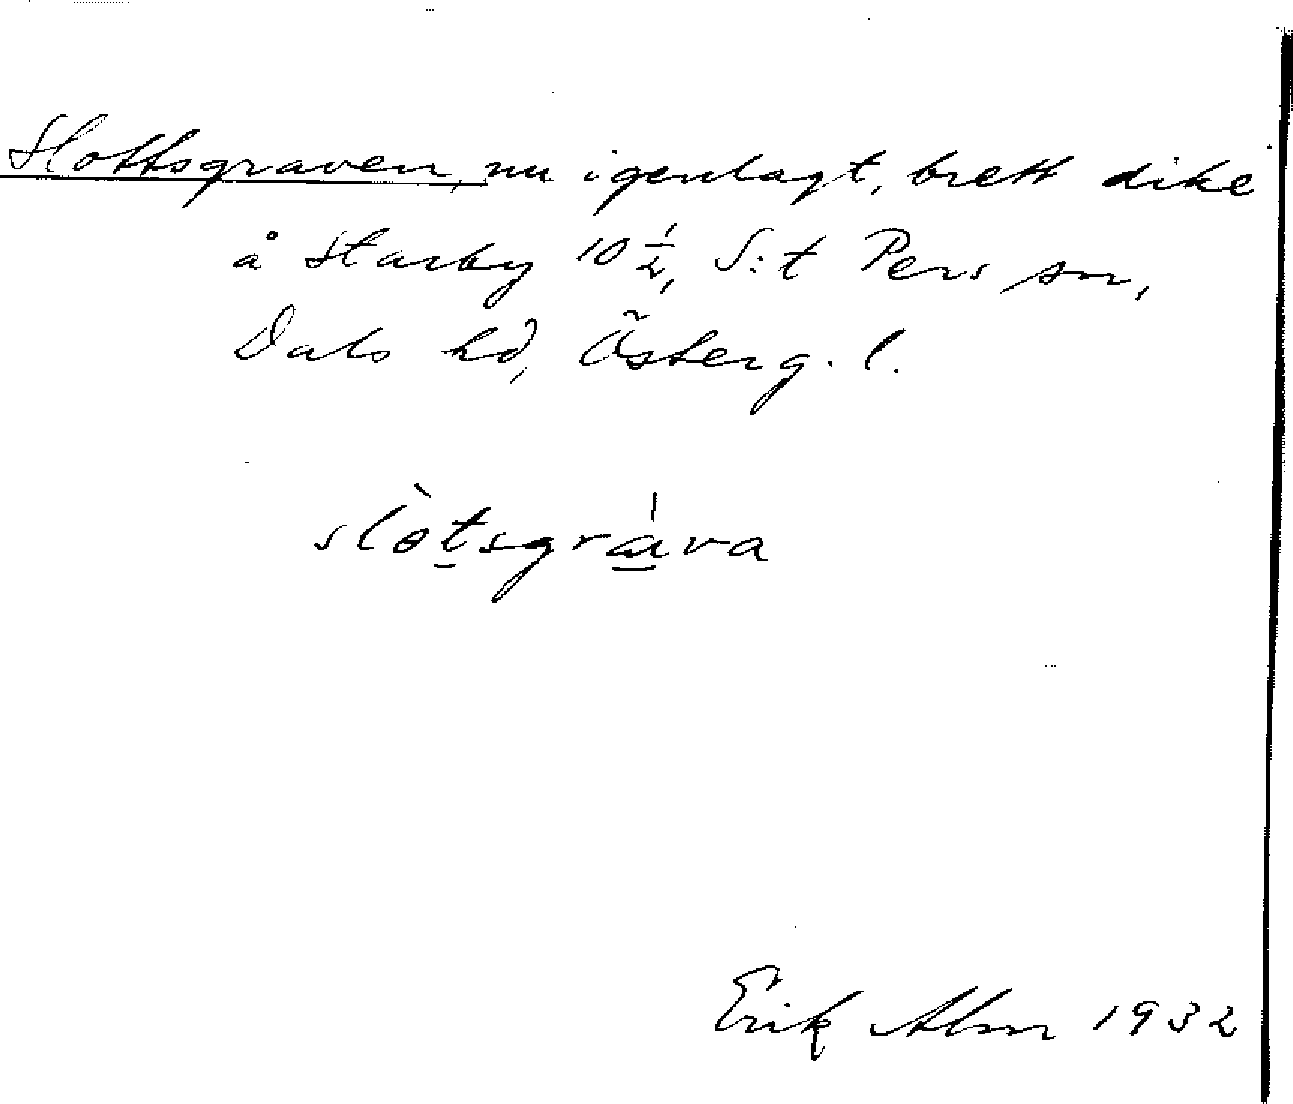 Slottsgraven, nu igenlagt, brett dike
å Starby 10 1/2, S:t Pers sn,
Dals hd, Österg. l.
slòt̲sgra̲̍va
Erik Alm 1932